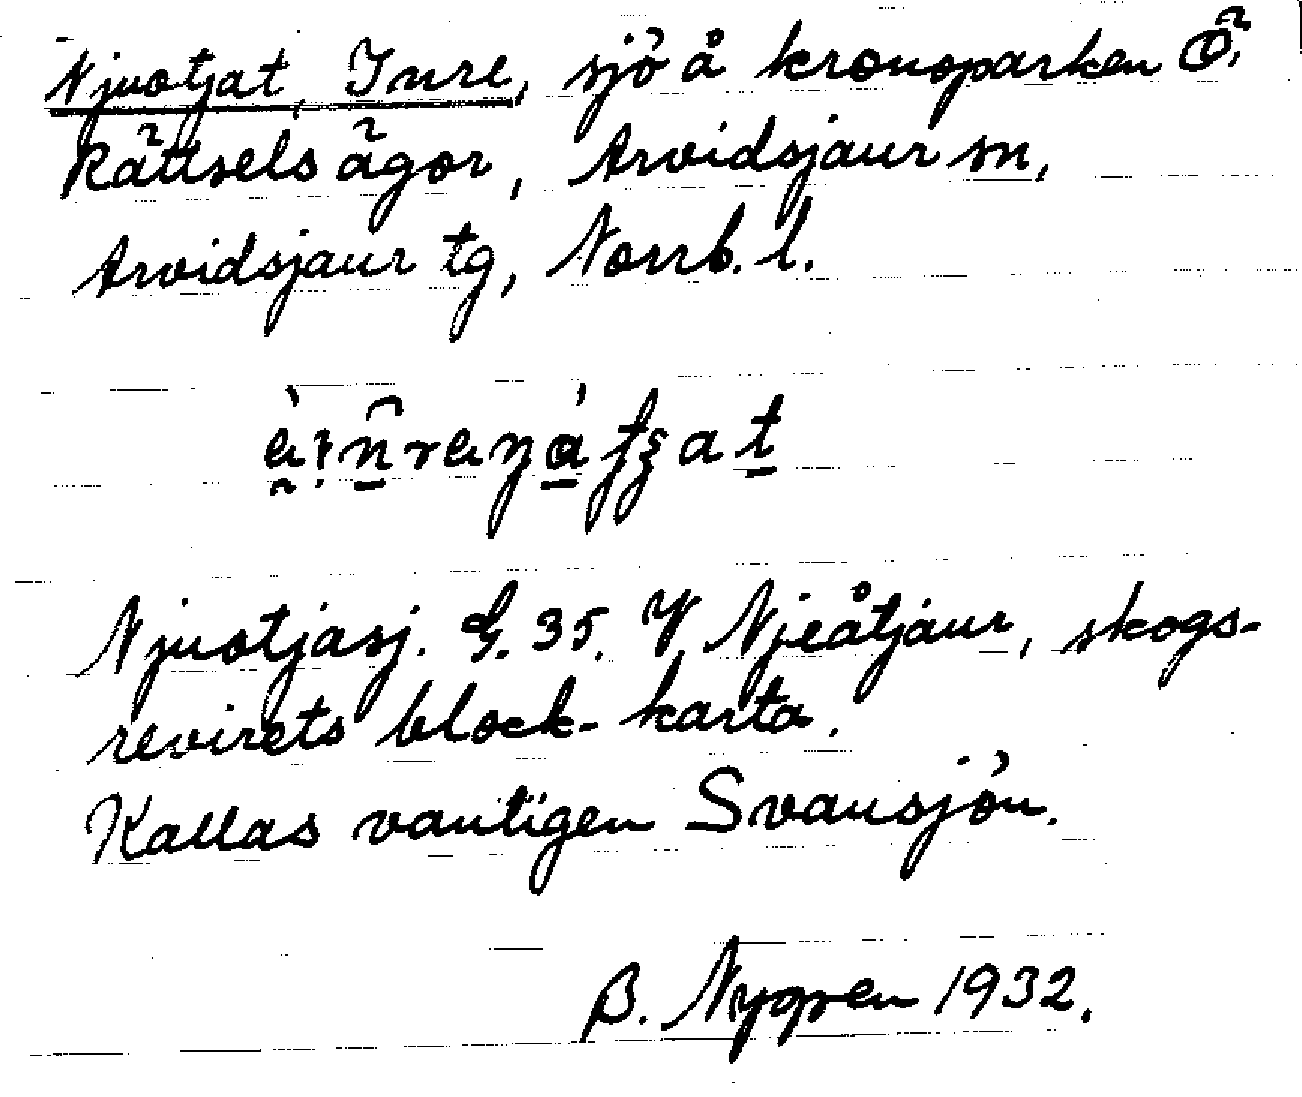 Njuotjat, Inre, sjö å kronoparken Ö.
Rättsels ägor, Arvidsjaur sn,
Arvidsjaur tg, Norrb. l.
Njuotjasj. G. 35. V. Njeåtjaur, skogs-
revirets block-karta.
Kallas vanligen Svansjön.
B. Nygren 1932.